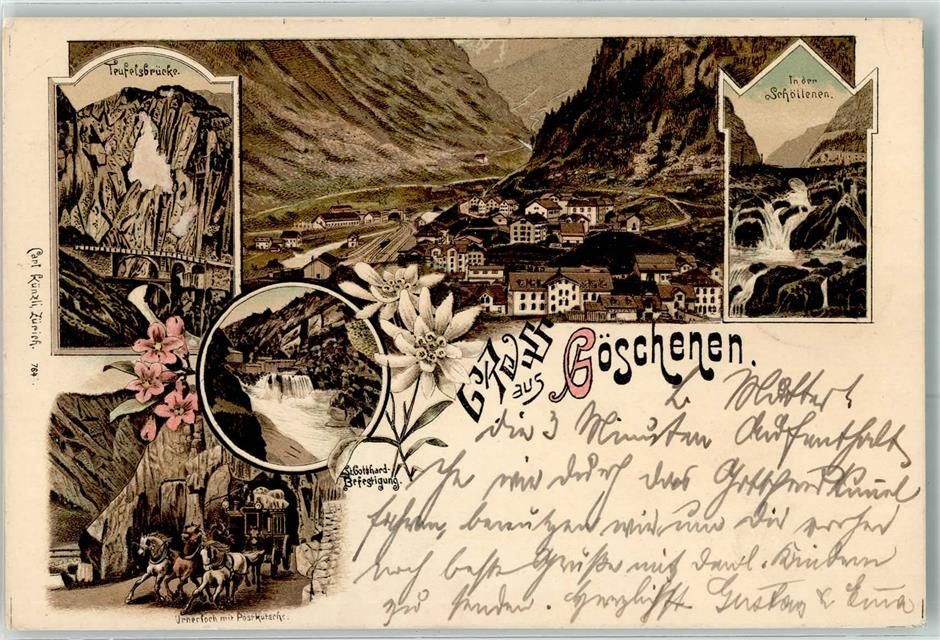 Teufelsbrücke.
In der
Schöllenen.
Carl Künzli, Zürich. 764
Gruss
aus
Göschenen.
St. Gotthard-
Befestigung.
Urnerloch mit Postkutsche.
L.
die 3 Minuten Aufenthalt
ehe wir durch das
fahren, benutzen wir um Dir vorher
noch beste Grüße mit den l. Kindern
zu senden. Herzlichst Gustav & Emma